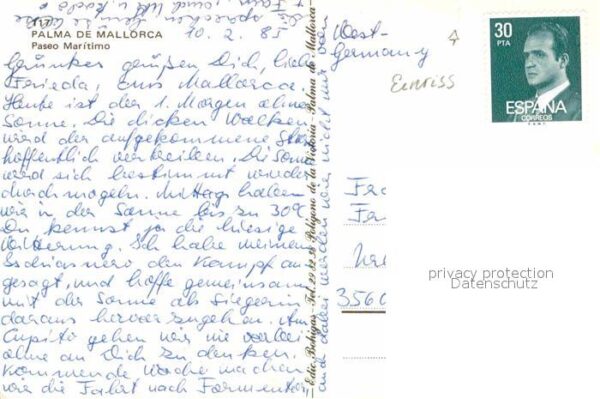 PALMA DE MALLORCA
Paseo Marítimo
10. 2. 85
grüßen Dich, liebe
Frieda, aus Mallorca.
Heute ist der 1. Morgen ohne
Sonne. Die dicken Wolken
wird der aufgekommene
hoffentlich vertreiben. Die Sonne
wird sich bestimmt wieder
durchmogeln. Mittags haben
wir in der Sonne bis zu 30°.
Du kennst ja die hiesige
Witterung. Ich habe meinem
den Kampf an-
gesagt, und hoffe gemeinsam
mit der Sonne als Siegerin
daraus hervorzugehen. Am
Cupito gehen wir nie vorbei
ohne an Dich zu denken.
Kommende Woche machen
wir die Fahrt nach Formentor,
Edic. Bohigas - Tel. 29 82 98 Polígono de la Victoria - Palma de Mallorca
West-
Germany
Einriss
30
PTA
ESPAÑA
CORREOS
3560
privacy protection
Datenschutz